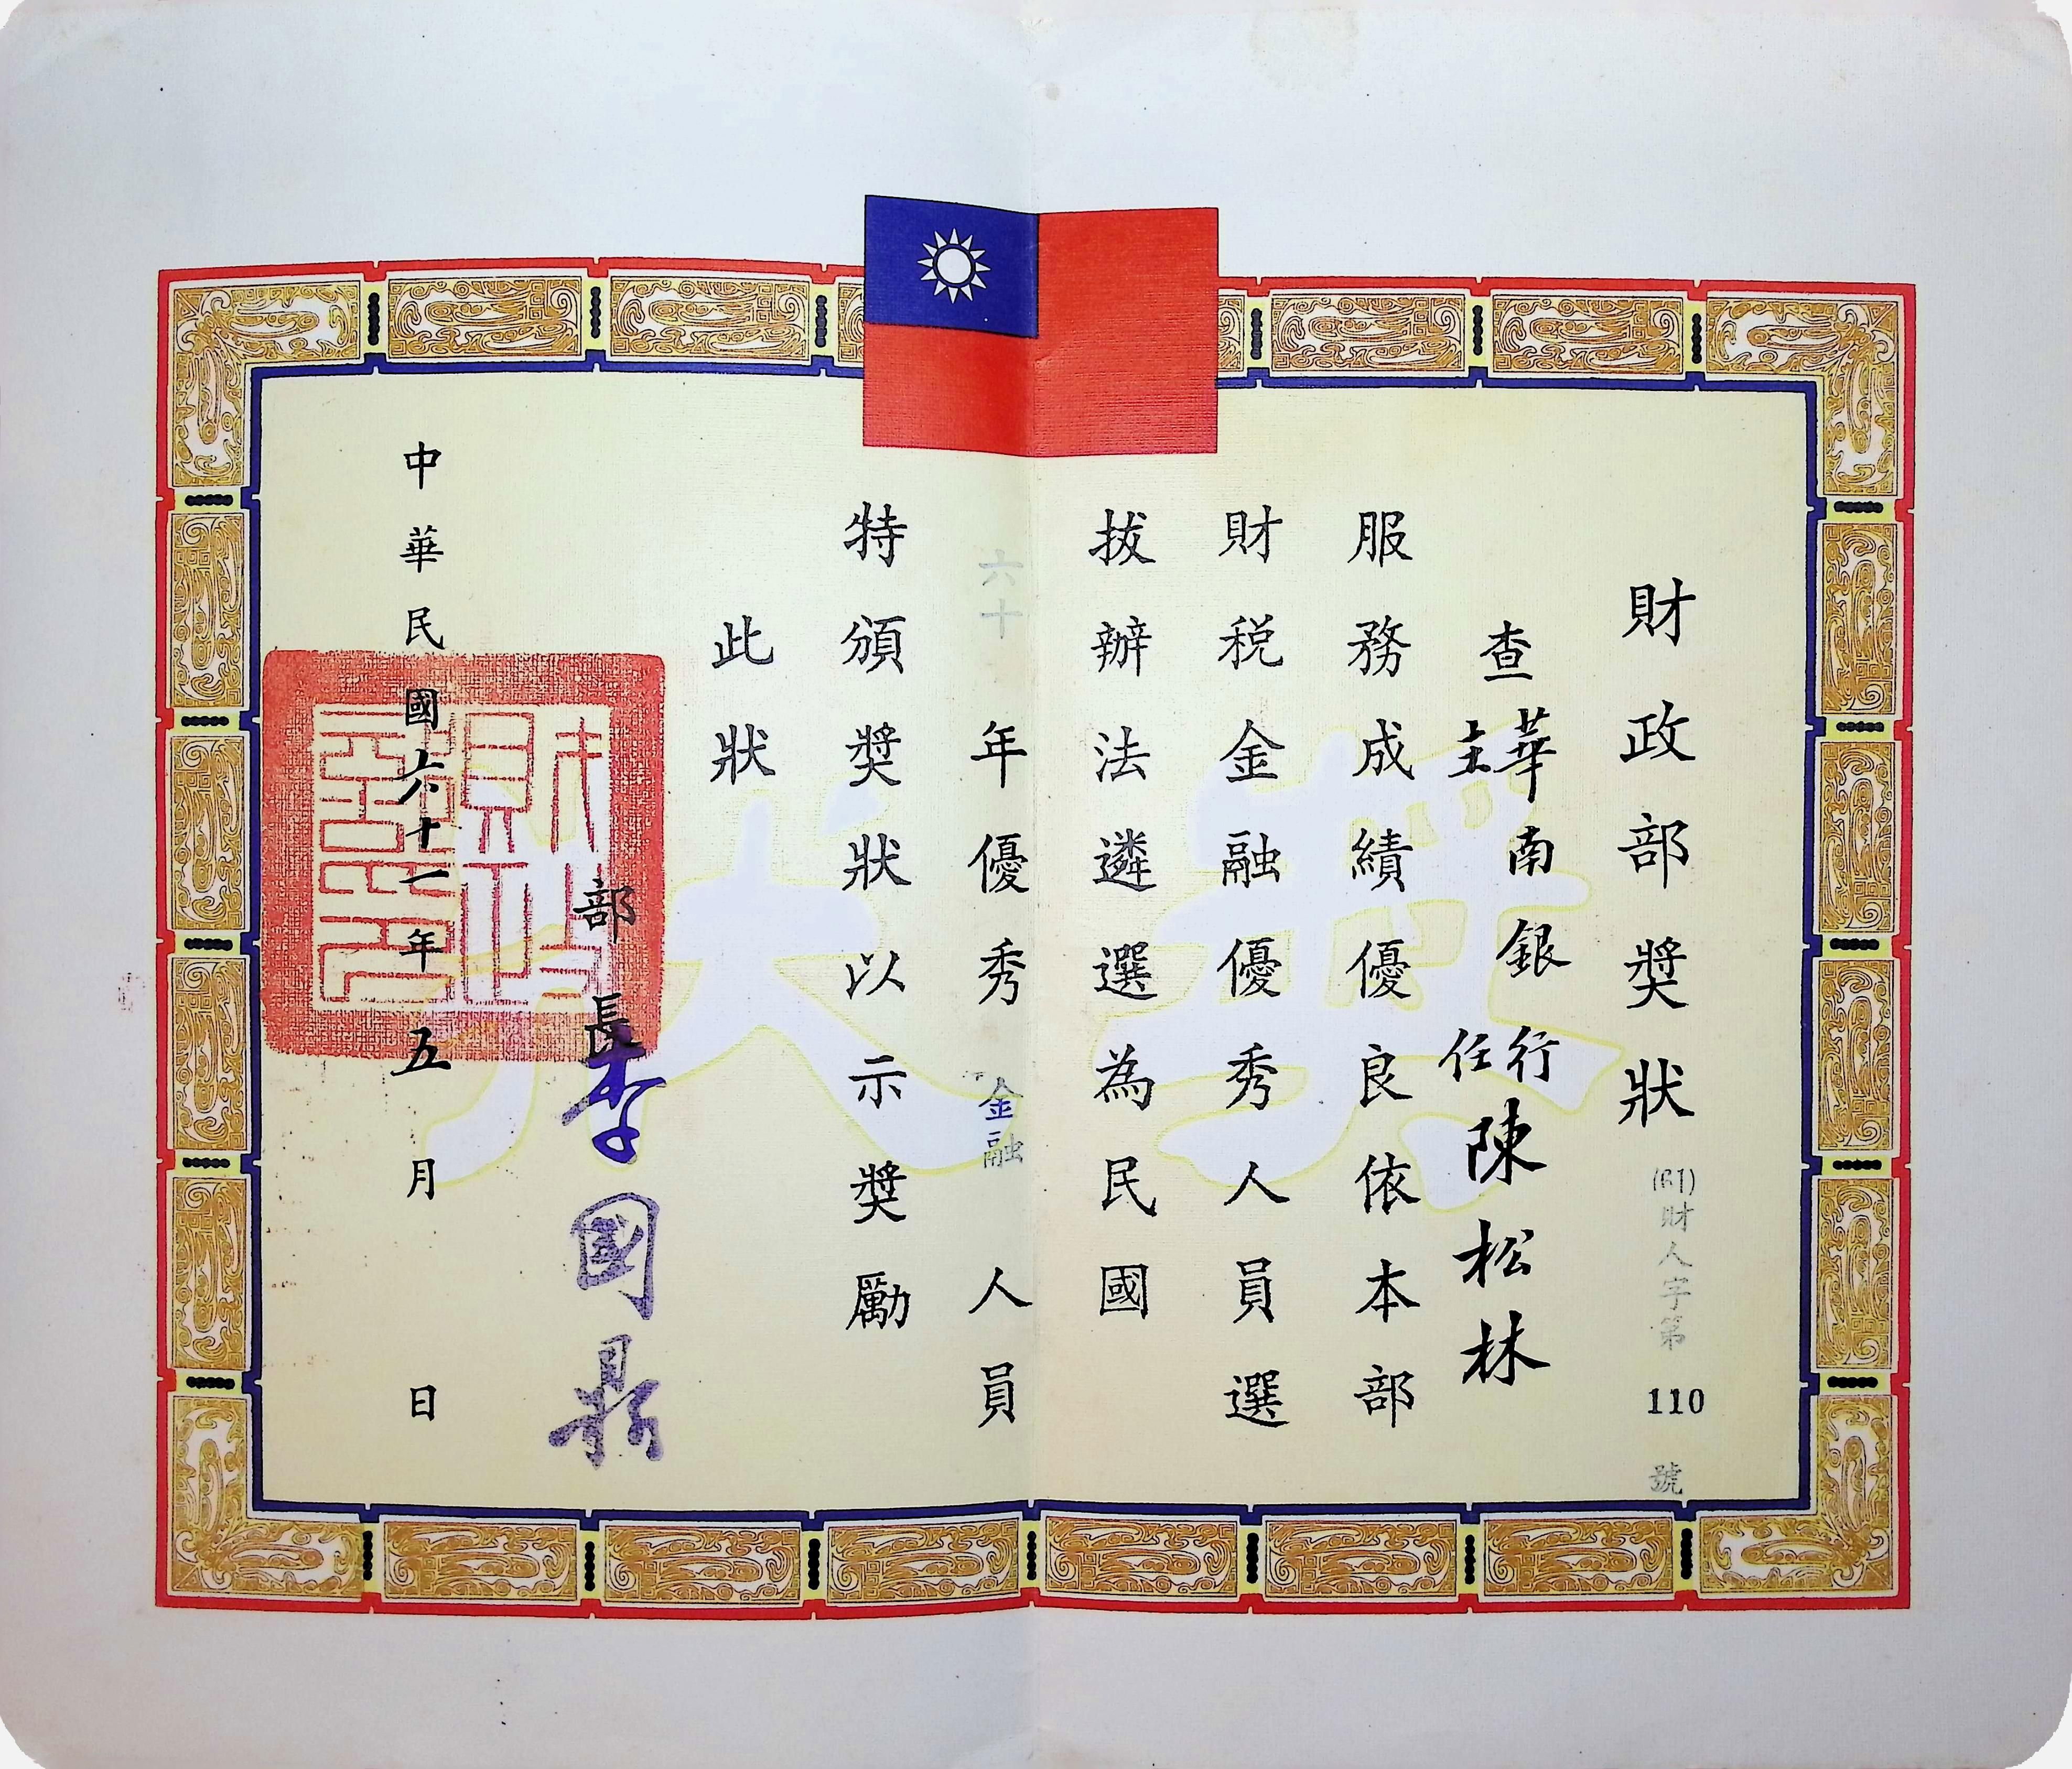 財政部獎狀
財人字第110號
查華南銀行
主任陳松林
服務成績優良依本部
財稅金融優秀人員選
拔辦法遴選為民國
六十年優秀金融人員
特頒獎狀以示獎勵
此狀
部長李國鼎
中華民國六十一年五月日
獎狀